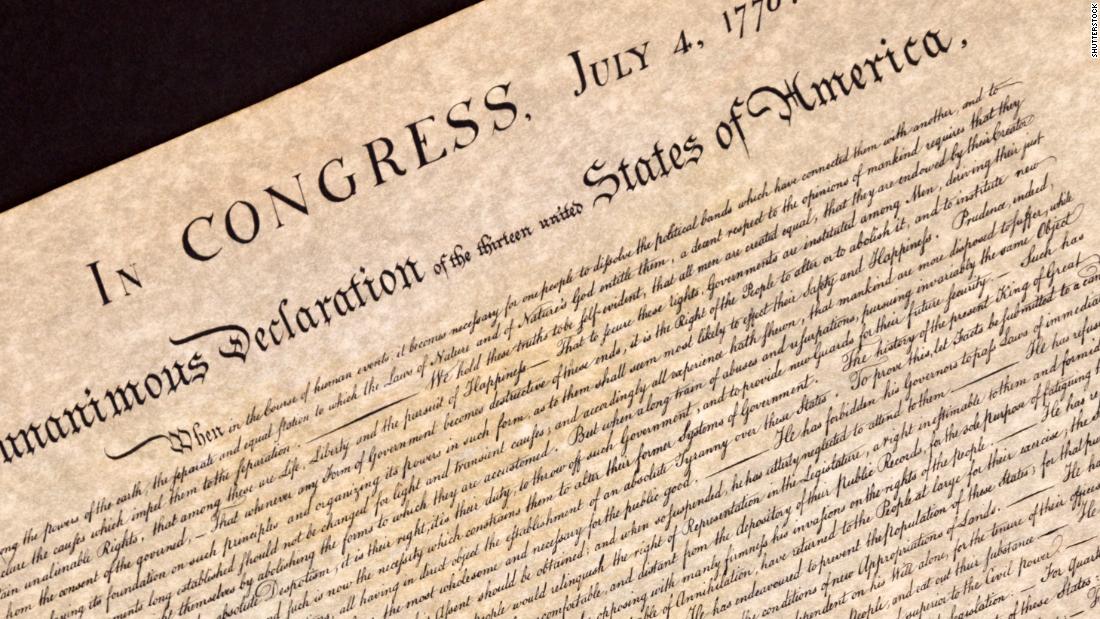 IN CONGRESS, JULY 4, 1776.
unanimous Declaration of the thirteen united States of America,
When in the Course of human events, it becomes necessary for one people to dissolve the political bands which have connected them with another, and to
the powers of the earth, the separate and equal station to which the Laws of Nature and of Nature's God entitle them, a decent respect to the opinions of mankind requires that they
the causes which impel them to the separation. We hold these truths to be self-evident, that all men are created equal, that they are endowed by their Creator
unalienable Rights, that among these are Life, Liberty and the pursuit of Happiness— That to secure these rights, Governments are instituted among Men, deriving their just
from the consent of the governed,— That whenever any Form of Government becomes destructive of these ends, it is the Right of the People to alter or to abolish it, and to institute new
its foundation on such principles and organizing its powers in such form, as to them shall seem most likely to effect their Safety and Happiness. Prudence, indeed,
long established should not be changed for light and transient causes; and accordingly all experience hath shewn, that mankind are more disposed to suffer, while
themselves by abolishing the forms to which they are accustomed. But when a long train of abuses and usurpations, pursuing invariably the same Object
absolute Despotism, it is their right, it is their duty, to throw off such Government, and to provide new Guards for their future security.— Such has
such is now the necessity which constrains them to alter their former Systems of Government. The history of the present King of Great
all having in direct object the establishment of an absolute Tyranny over these States. To prove this, let Facts be submitted to a can
the most wholesome and necessary for the public good. He has forbidden his Governors to pass Laws of immediate
Assent should be obtained; and when so suspended, he has utterly neglected to attend to them. He has refus
people would relinquish the right of Representation in the Legislature, a right inestimable to them and formid
uncomfortable, and distant from the depository of their public Records, for the sole purpose of fatiguing
opposing with manly firmness his invasions on the rights of the people. He has re
of Annihilation, have returned to the People at large for their exercise; the
He has endeavoured to prevent the population of these States; for that pur
the conditions of new Appropriations of Lands. He ha
dependent on his Will alone, for the tenure of their
People, and eat out their substance. He
superior to the Civil power
For quar
of these States:
SHUTTERSTOCK